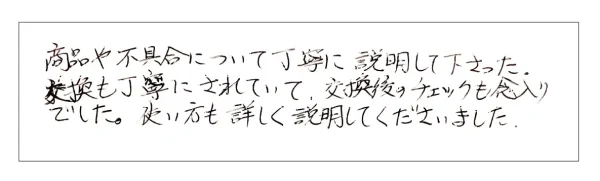 商品や不具合について丁寧に説明して下さった。
交換も丁寧にされていて、交換後のチェックも念入り
でした。使い方も詳しく説明してくださいました。